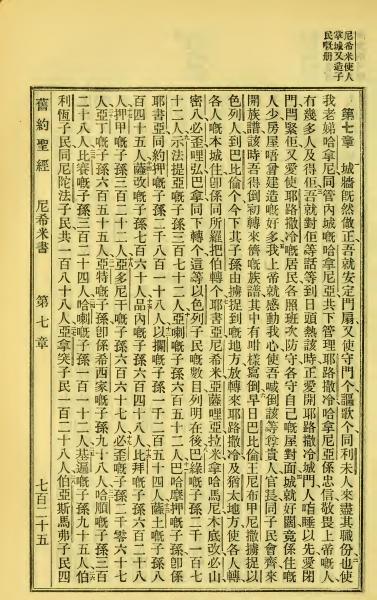 尼希米使人
掌城又造子
民嘅册
第七章　城牆既然做正吾就安定門扇又使守門个謳歌个同利未人來盡其職份也使
我老娣哈拿尼同管內城嘅哈拿尼亞共下管理耶路撒冷哈拿尼亞係忠信敬畏上帝嘅人
有幾多人及得佢吾就對佢等話等到日頭熱該時正愛開耶路撒冷城門人唔睡以先愛閉
門閂緊佢又愛使耶路撒冷嘅居民各照班次防守各守自己嘅屋對面城就好闊竟係住嘅
人少房屋唔曾建造嘅好多我上帝就感動我心使吾喊倒該等尊貴人官長同子民會齊來
開族譜該時吾得倒初轉來儕嘅族譜其中有咁樣寫倒早日巴比倫王尼布甲尼撒擄捉以
色列人到巴比倫个今下其子孫由擄捉到嘅地方放轉來耶路撒冷及猶太地方使各人轉
各人嘅本城住卽係同所羅把伯轉个耶書亞尼希米亞薩哩亞拉米拿哈馬尼木底改必山
密八必歪哩弘巴拿同下轉个這等以色列子民嘅數目列明在後巴綠嘅子孫二千一百七
十二人示法提亞嘅子孫三百七十二人亞喇嘅子孫六百五十二人巴哈摩押嘅子孫卽係
耶書亞同約押嘅子孫二千八百一十八人以攔嘅子孫一千二百五十四人薩土嘅子孫八
百四十五人薩改嘅子孫七百六十人品內嘅子孫六百四十八人比拜嘅子孫六百二十八
人押甲嘅子孫三百二十二人亞多尼干嘅子孫六百六十七人必歪嘅子孫二千零六十七
人亞丁嘅子孫六百五十五人亞特嘅子孫卽係希西家嘅子孫九十八人哈順嘅子孫三百
二十八人比賽嘅子孫三百二十四人哈喇嘅子孫一百一十二人基遍嘅子孫九十五人伯
利恆子民同尼陀法子民共一百八十八人亞拿突子民一百二十八人伯亞斯馬弗子民四
舊約聖經　尼希米書　第七章　七百二十五